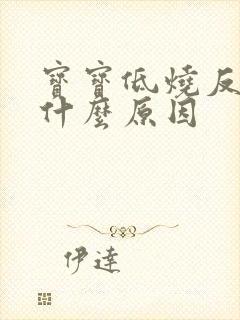 寶寶低燒反
什麼原因
伊達